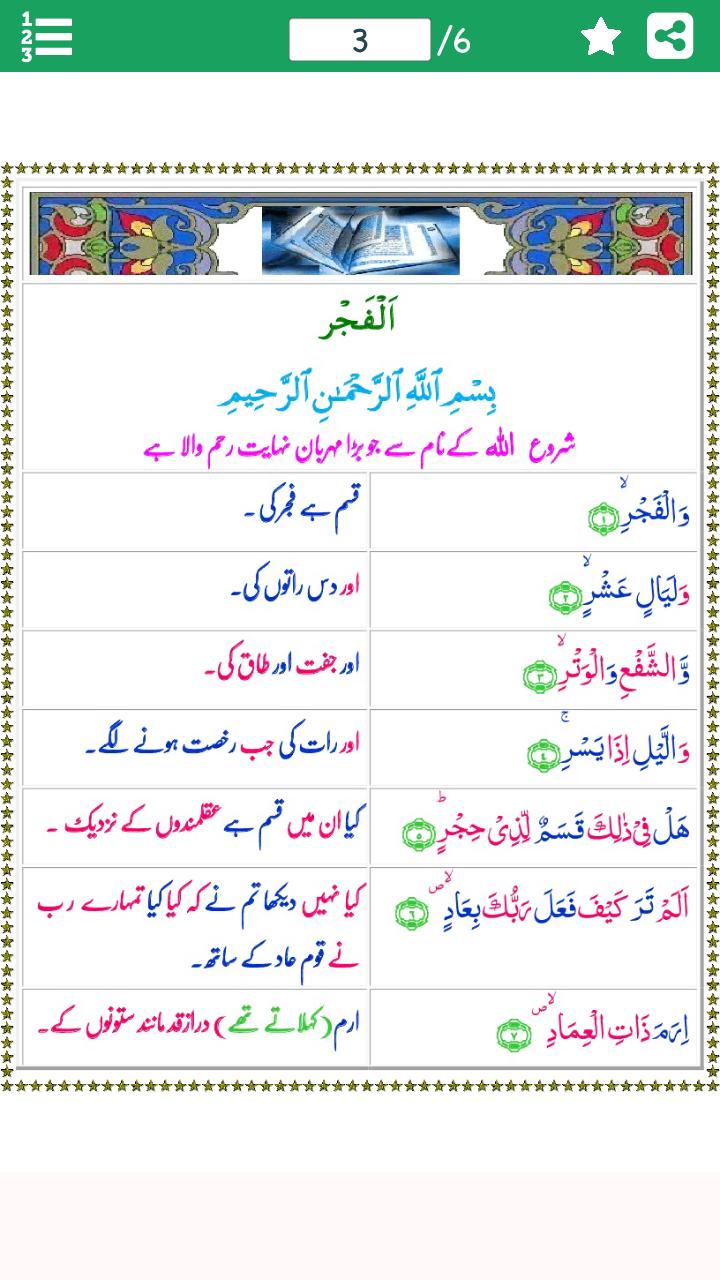 3
/6
اَلْفَجْر
بِسْمِ ٱللَّهِ ٱلرَّحْمَـٰنِ ٱلرَّحِيمِ
شروع اللہ کے نام سے جو بڑا مہربان نہایت رحم والا ہے
وَالْفَجْرِۙ ۝۱
قسم ہے فجر کی ۔
وَلَيَالٍ عَشْرٍۙ ۝۲
اور دس راتوں کی۔
وَّالشَّفْعِ وَالْوَتْرِۙ ۝۳
اور جفت اور طاق کی۔
وَالَّيْلِ اِذَا يَسْرِۚ ۝۴
اور رات کی جب رخصت ہونے لگے۔
هَلْ فِىْ ذٰلِكَ قَسَمٌ لِّذِىْ حِجْرٍؕ ۝۵
کیا ان میں قسم ہے عقلمندوں کے نزدیک ۔
اَلَمْ تَرَ كَيْفَ فَعَلَ رَبُّكَ بِعَادٍۙۖ ۝۶
کیا نہیں دیکھا تم نے کہ کیا کیا تمہارے رب
نے قوم عاد کے ساتھ۔
اِرَمَ ذَاتِ الْعِمَادِۙۖ ۝۷
ارم (کہلاتے تھے) دراز قد مانند ستونوں کے۔